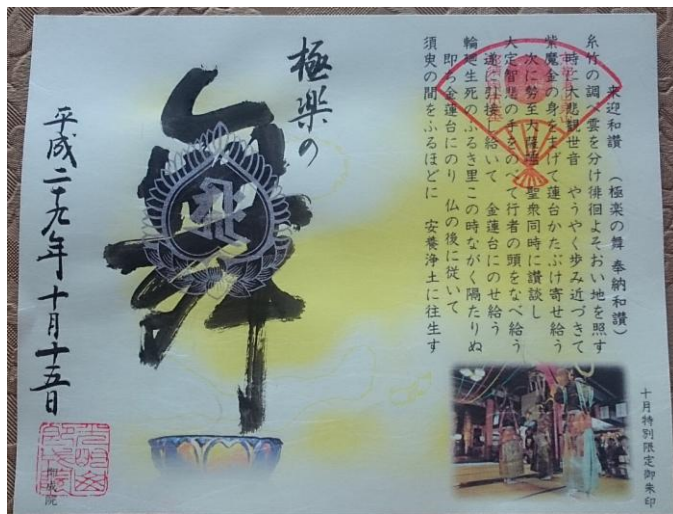 来迎和讃　（極楽の舞 奉納和讃）
糸竹の調べ雲を分け徘徊よそおい地を照す
時に大悲観世音　やうやく歩み近づきて
紫魔金の身をまげて蓮台かたぶけ寄せ給う
次に勢至大薩埵　聖衆同時に讃談し
大定智悲の手をのべて行者の頭をなべ給う
遂に引接し給いて　金蓮台にのせ給う
輪廻生死のふるき里この時ながく隔たりぬ
即ち金蓮台にのり　仏の後に従いて
須臾の間をふるほどに　安養浄土に往生す
極楽の
舞
平成二十九年十月十五日
十月特別限定御朱印